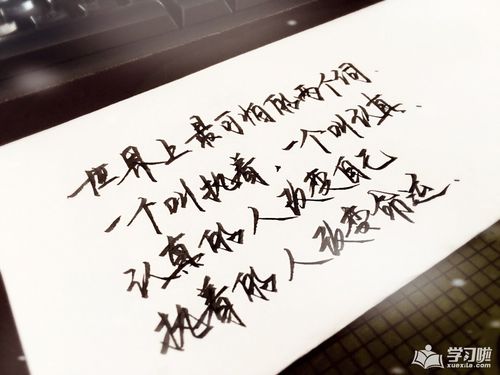 世界上最可怕的两个词
一个叫执着,一个叫认真.
认真的人改变自己
执着的人改变命运.
学习啦
xuexila.com